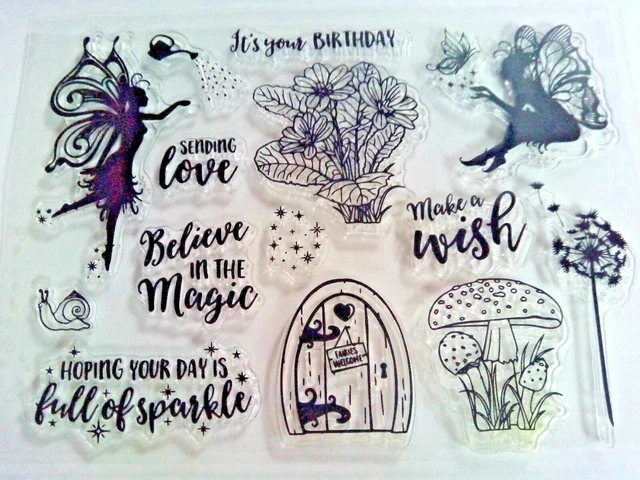 It's your BIRTHDAY
SENDING
love
Believe
IN THE
Magic
Make a
wish
FAIRIES
WELCOME
HOPING YOUR DAY IS
full of sparkle